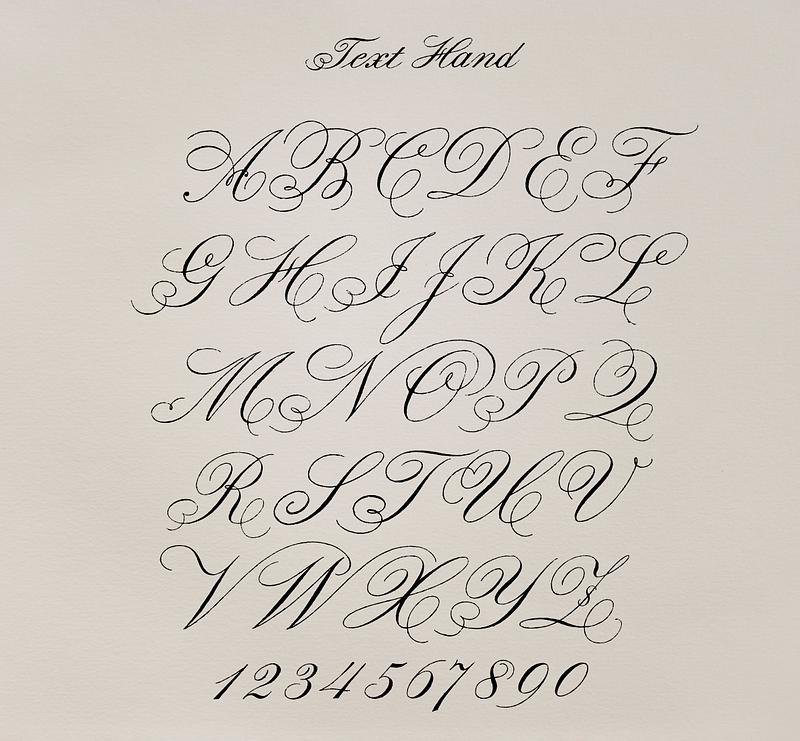 Text Hand
A B C D E F
G H I J K L
M N O P Q
R S T U V
V W X Y Z
1 2 3 4 5 6 7 8 9 0